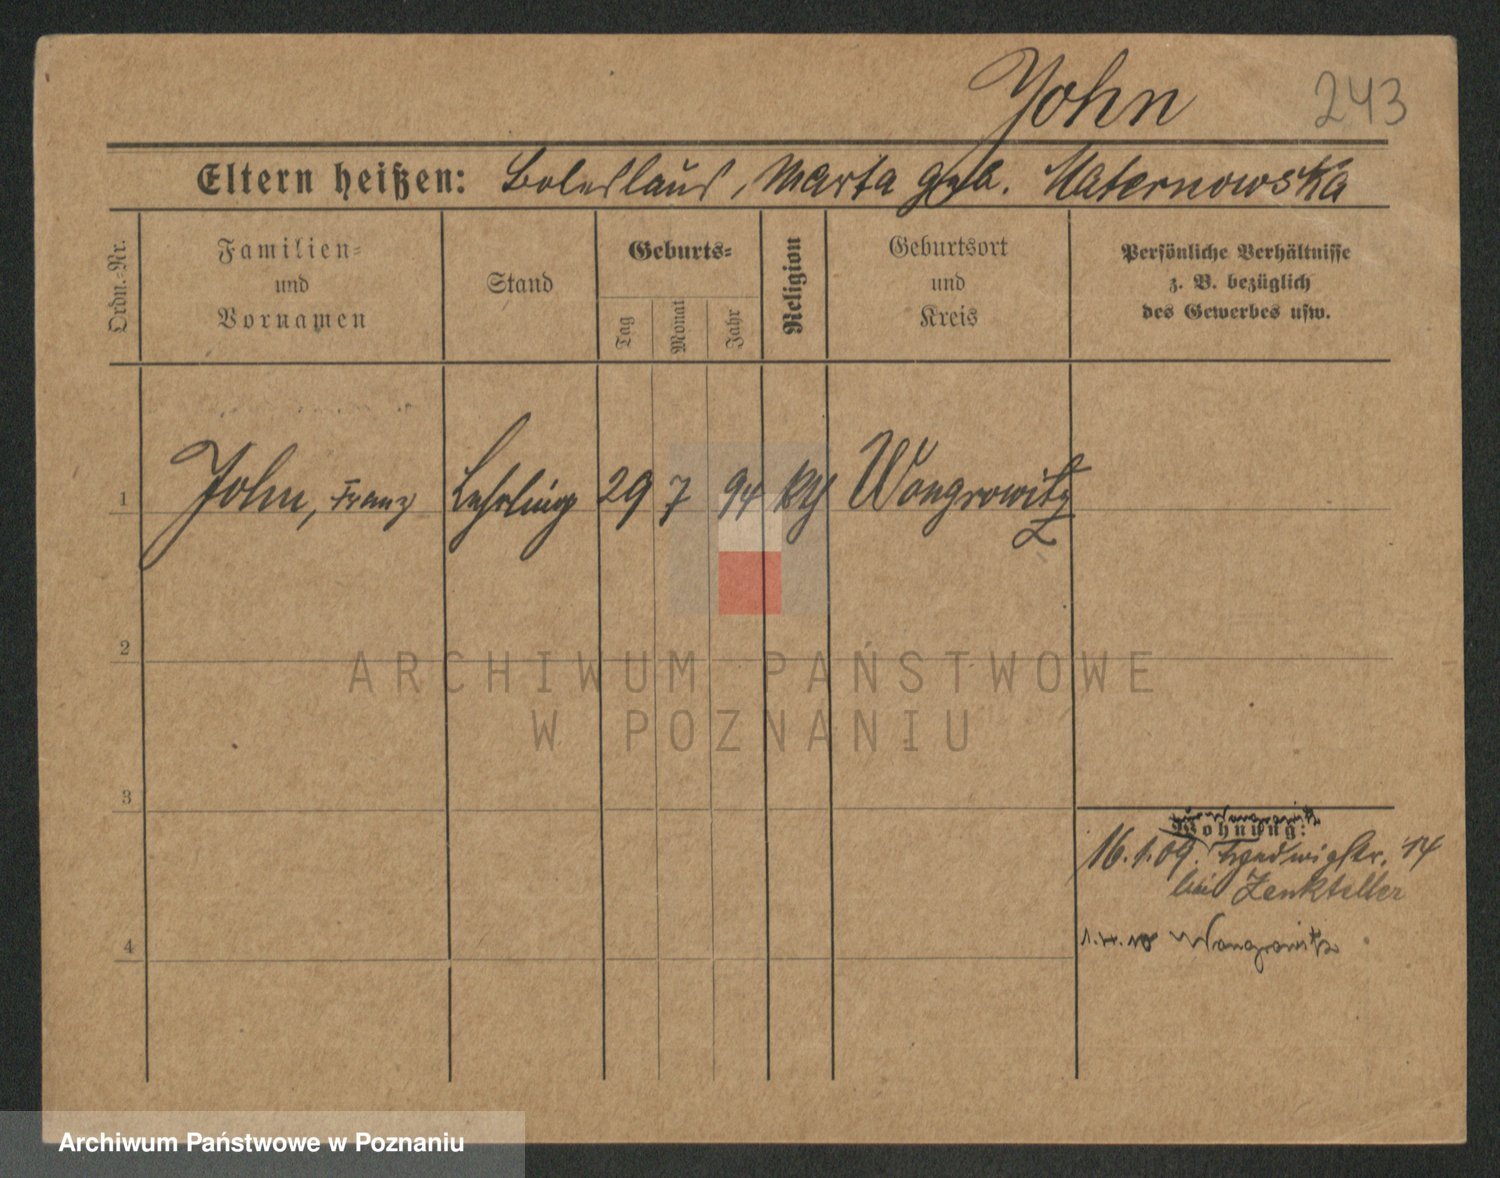 John 243
Eltern heißen: Boleslaus, Marta geb. Maternowska
Ordn.-Nr.
Familien-
und
Vornamen
Stand
Geburts-
Tag
Monat
Jahr
Religion
Geburtsort
und
Kreis
Persönliche Verhältnisse
z. B. bezüglich
des Gewerbes usw.
1 John, Franz Lehrling 29 7 94 kth Wongrowitz
2
ARCHIWUM PAŃSTWOWE
W POZNANIU
3
von Wongrowitz
Wohnung:
16.1.09. Hedwigstr. 14
bei Zenkteller
4
1.4.10 Wongrowitz
Archiwum Państwowe w Poznaniu